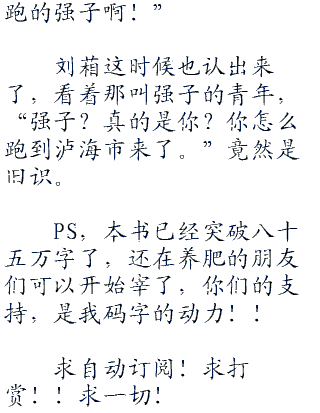 跑的强子啊！”
刘葙这时候也认出来
了，看着那叫强子的青年，
“强子？真的是你？你怎么
跑到泸海市来了。”竟然是
旧识。
PS，本书已经突破八十
五万字了，还在养肥的朋友
们可以开始宰了，你们的支
持，是我码字的动力！！
求自动订阅！求打
赏！！求一切！